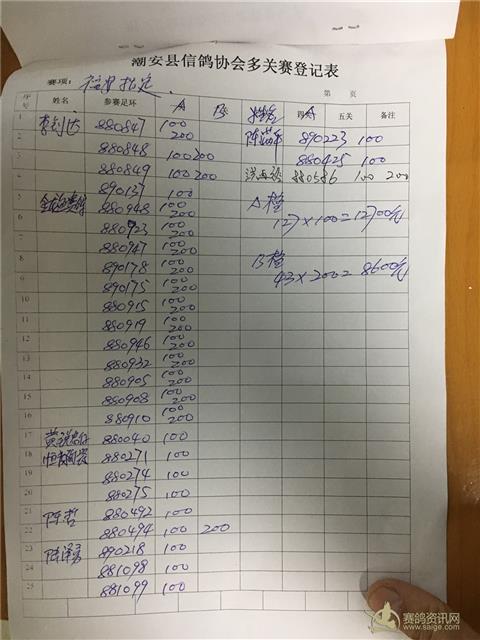 潮安县信鸽协会多关赛登记表
赛项： 指定 第 页
序号 姓名 参赛足环 A B 姓名 四关 A 五关 备注
1 李利达 880847 100 200 陈 890223 100
2 880848 100 200 880425 100
3 880849 100 200 880586 100 200
4 890137 100 A档
5 880948 100 200 127×100=12700元
6 880923 100 200
7 880947 100 200 B档
8 890178 100 200 43×200=8600元
9 890175 100 200
10 880915 100 200
11 880919 100 200
12 880946 100 200
13 880932 100 200
14 880905 100 200
15 880908 100 200
16 880910 100 200
17 黄 880040 100
18 880271 100
19 880274 100
20 880275 100
21 陈哲 880492 100
22 880494 100 200
23 陈泽 890218 100
24 881098 100
25 881099 100
赛鸽资讯网
www.saige.com